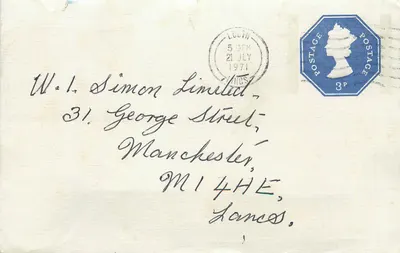 5 PM
21 JLY
1971
POSTAGE POSTAGE
3P
W. I. Simon Limited,
31, George Street,
Manchester,
M1 4HE,
Lancs.